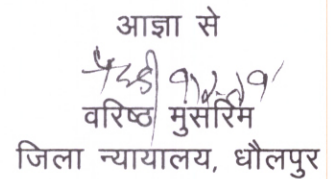 आज्ञा से
वरिष्ठ मुंसरिम
जिला न्यायालय, धौलपुर